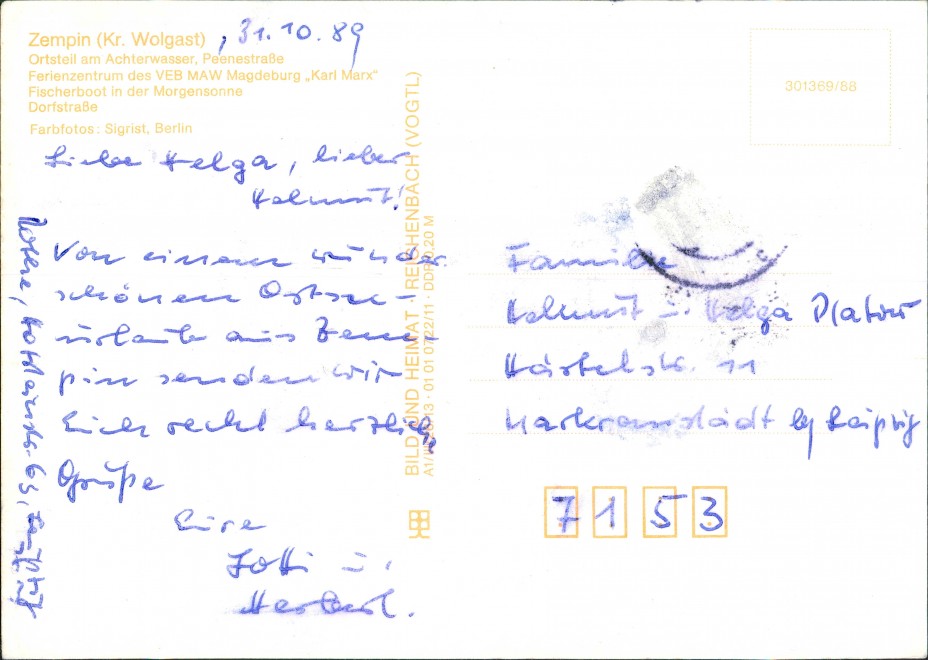 Zempin (Kr. Wolgast) , 31.10.89
Ortsteil am Achterwasser, Peenestraße
Ferienzentrum des VEB MAW Magdeburg „Karl Marx“
Fischerboot in der Morgensonne
Dorfstraße
Farbfotos: Sigrist, Berlin
Liebe Helga, lieber
Helmut!
Von einem wunder
schönen Ostsee-
urlaub aus Zem
pin senden wir
Euch recht herzliche
Grüße
Eure
Lotti u.
Herbert.
BILD UND HEIMAT · REICHENBACH (VOGTL)
01 01 0722/11 · DDR 0.20 M
301369/88
Familie
Helmut u. Helga Platow
Härtelstr. 11
Markranstädt b/ Leipzig
7153